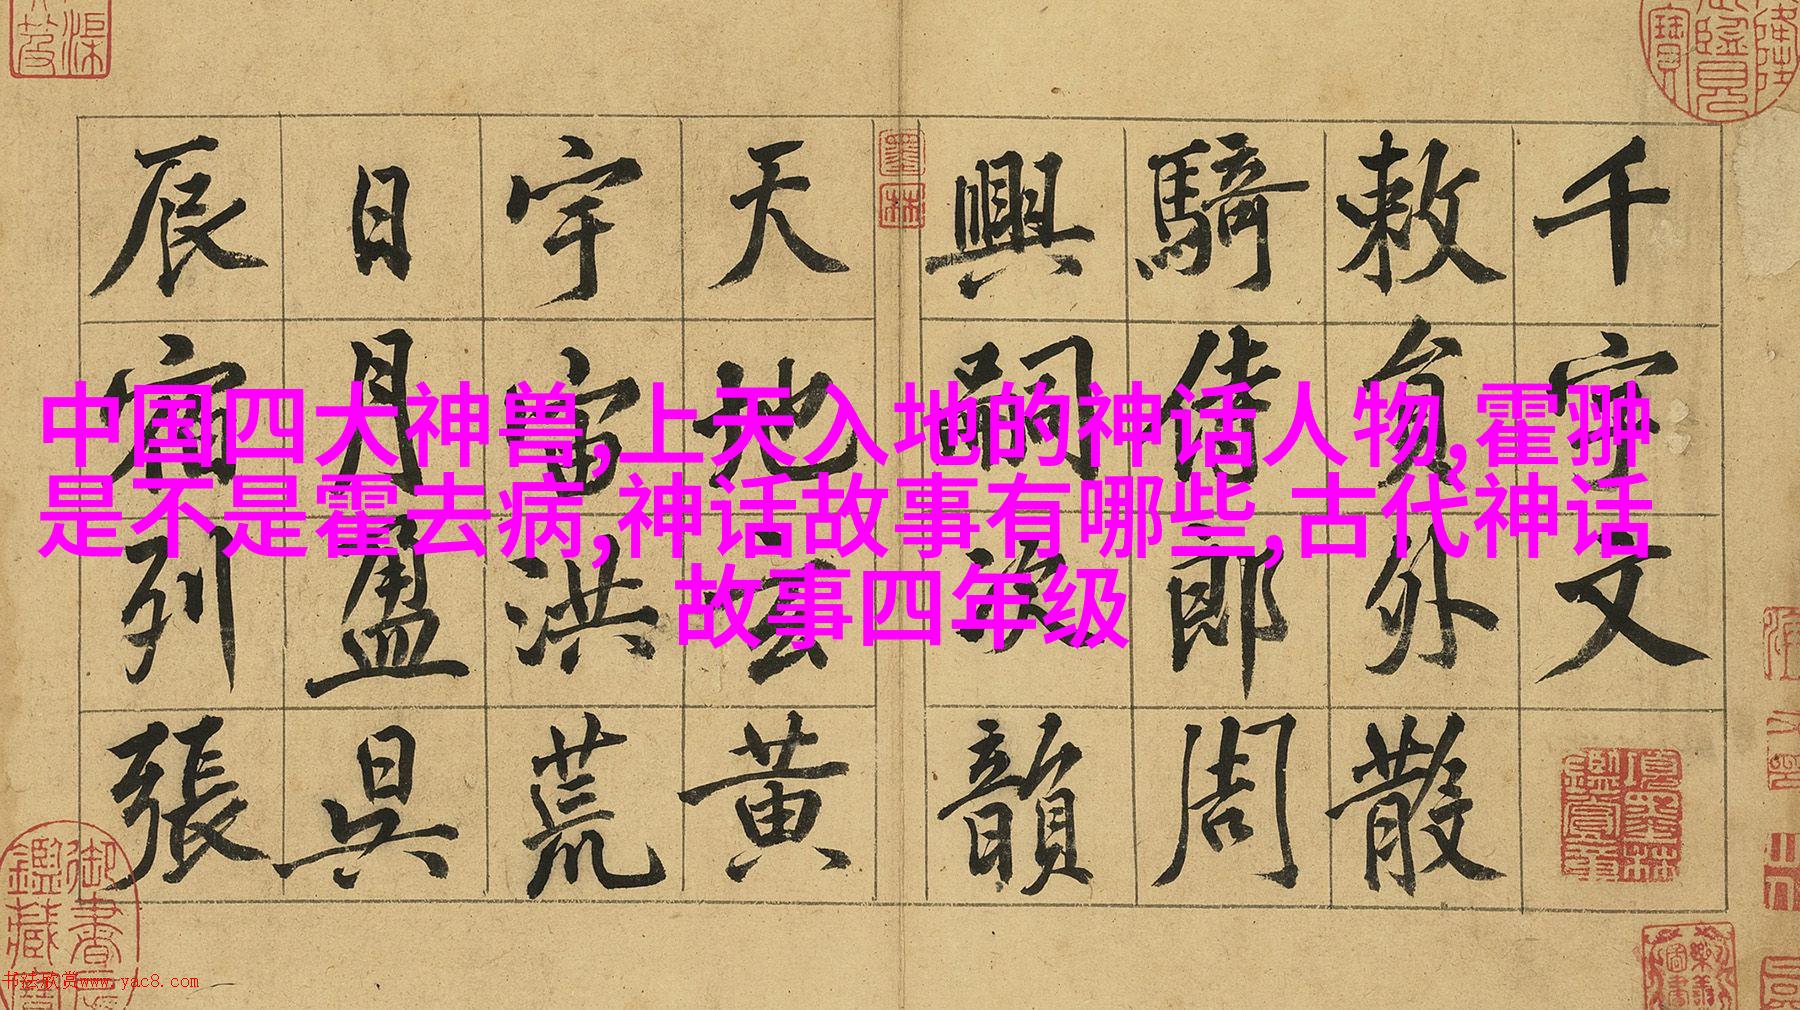 中国四大神兽,上天入地的神话人物,霍翀
是不是霍去病,神话故事有哪些,古代神话
故事四年级
千字文
敕員外散
騎侍郎周
興嗣次韻
天地玄黄
宇宙洪荒
日月盈昃
辰宿列張
墨林
項墨林鑑賞章
书法欣赏www.yac8.com